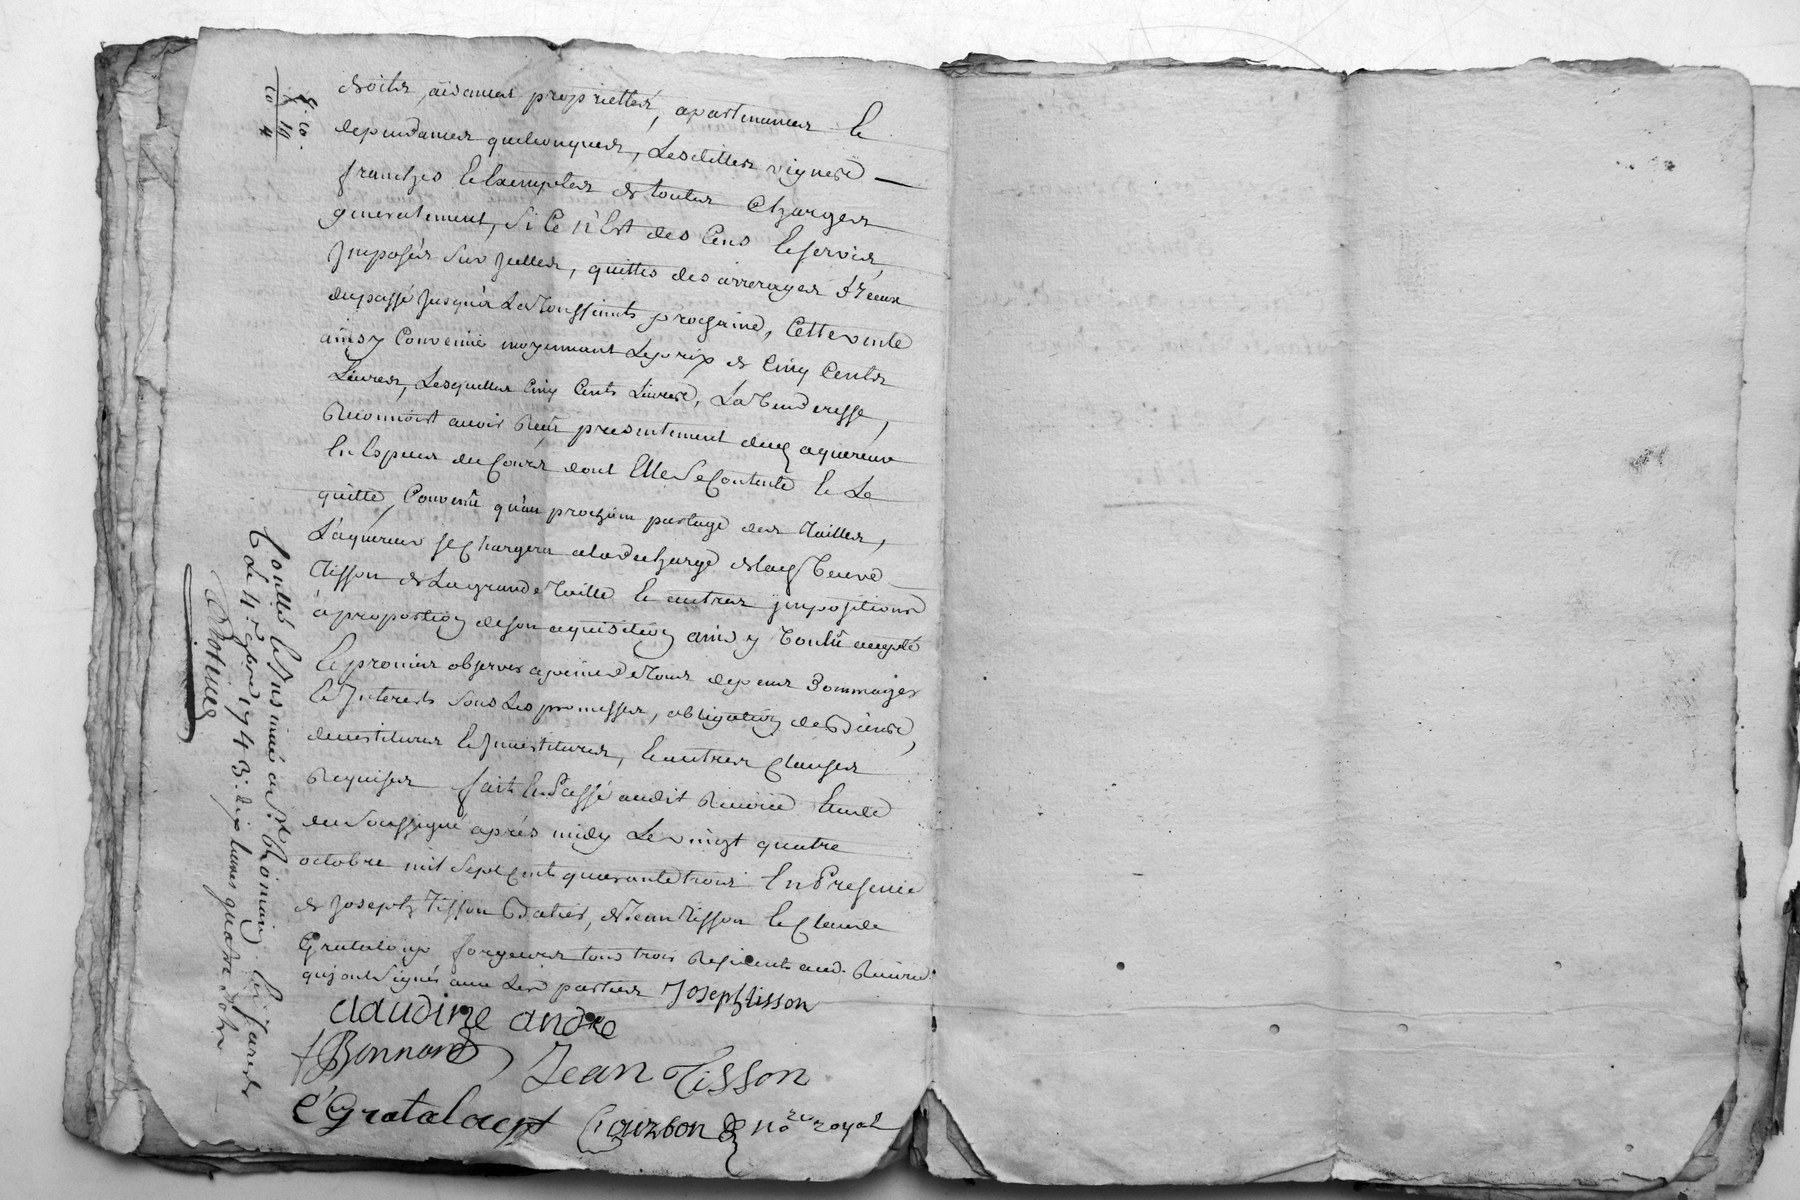 droits, aisances proprietter, apartenances Et
dependances quelconques, Lesdittes vignes
franches Et Exemptes de toutes Charges
generalement, Si Ce n'Est des Cens Et servis,
Imposés Sur Jcelles, quittes des arrerages d'iceux
du passé Jusqu'a La Toussaints prochaine, Cette vente
ainsy Convenüe moyennant Le prix de Cinq Cents
Livres, Lesquelles Cinq Cents Livres, La Venderesse,
Reconnoist avoir Reçu presentement dud aquereur
En Especes du Cours dont Elle Se Contente Et Le
quitte, Convenû qu'au prochain partage des Tailles,
L'aquereur se Chargera a la decharge de lad Veuve
Tisson de La grande Taille Et autres jmpositions
à proportion de son aquisition ainsy Voulû accepté
Et promis observer a peine de Tous depens Dommages
Et Jnterests Sous Les promesses, obligation de Biens,
devestitures Et Jnvestitures, Et autres Clauses
Requises fait Et Passé audit Etude
du Soussigné après midy Le vingt quatre
octobre mil Sept Cents quarante trois En Presence
de Joseph Tisson de Jean Tisson Et Claude
Grataloup forgeurs tous trois Residents aud.
qui ont Signés avec Les parties Joseph tisson
claudine andre
Bonnand
Jean Tisson
C Grataloup Courbon No re royal
Le 4e 9bre 1743: dix livres quatre sols